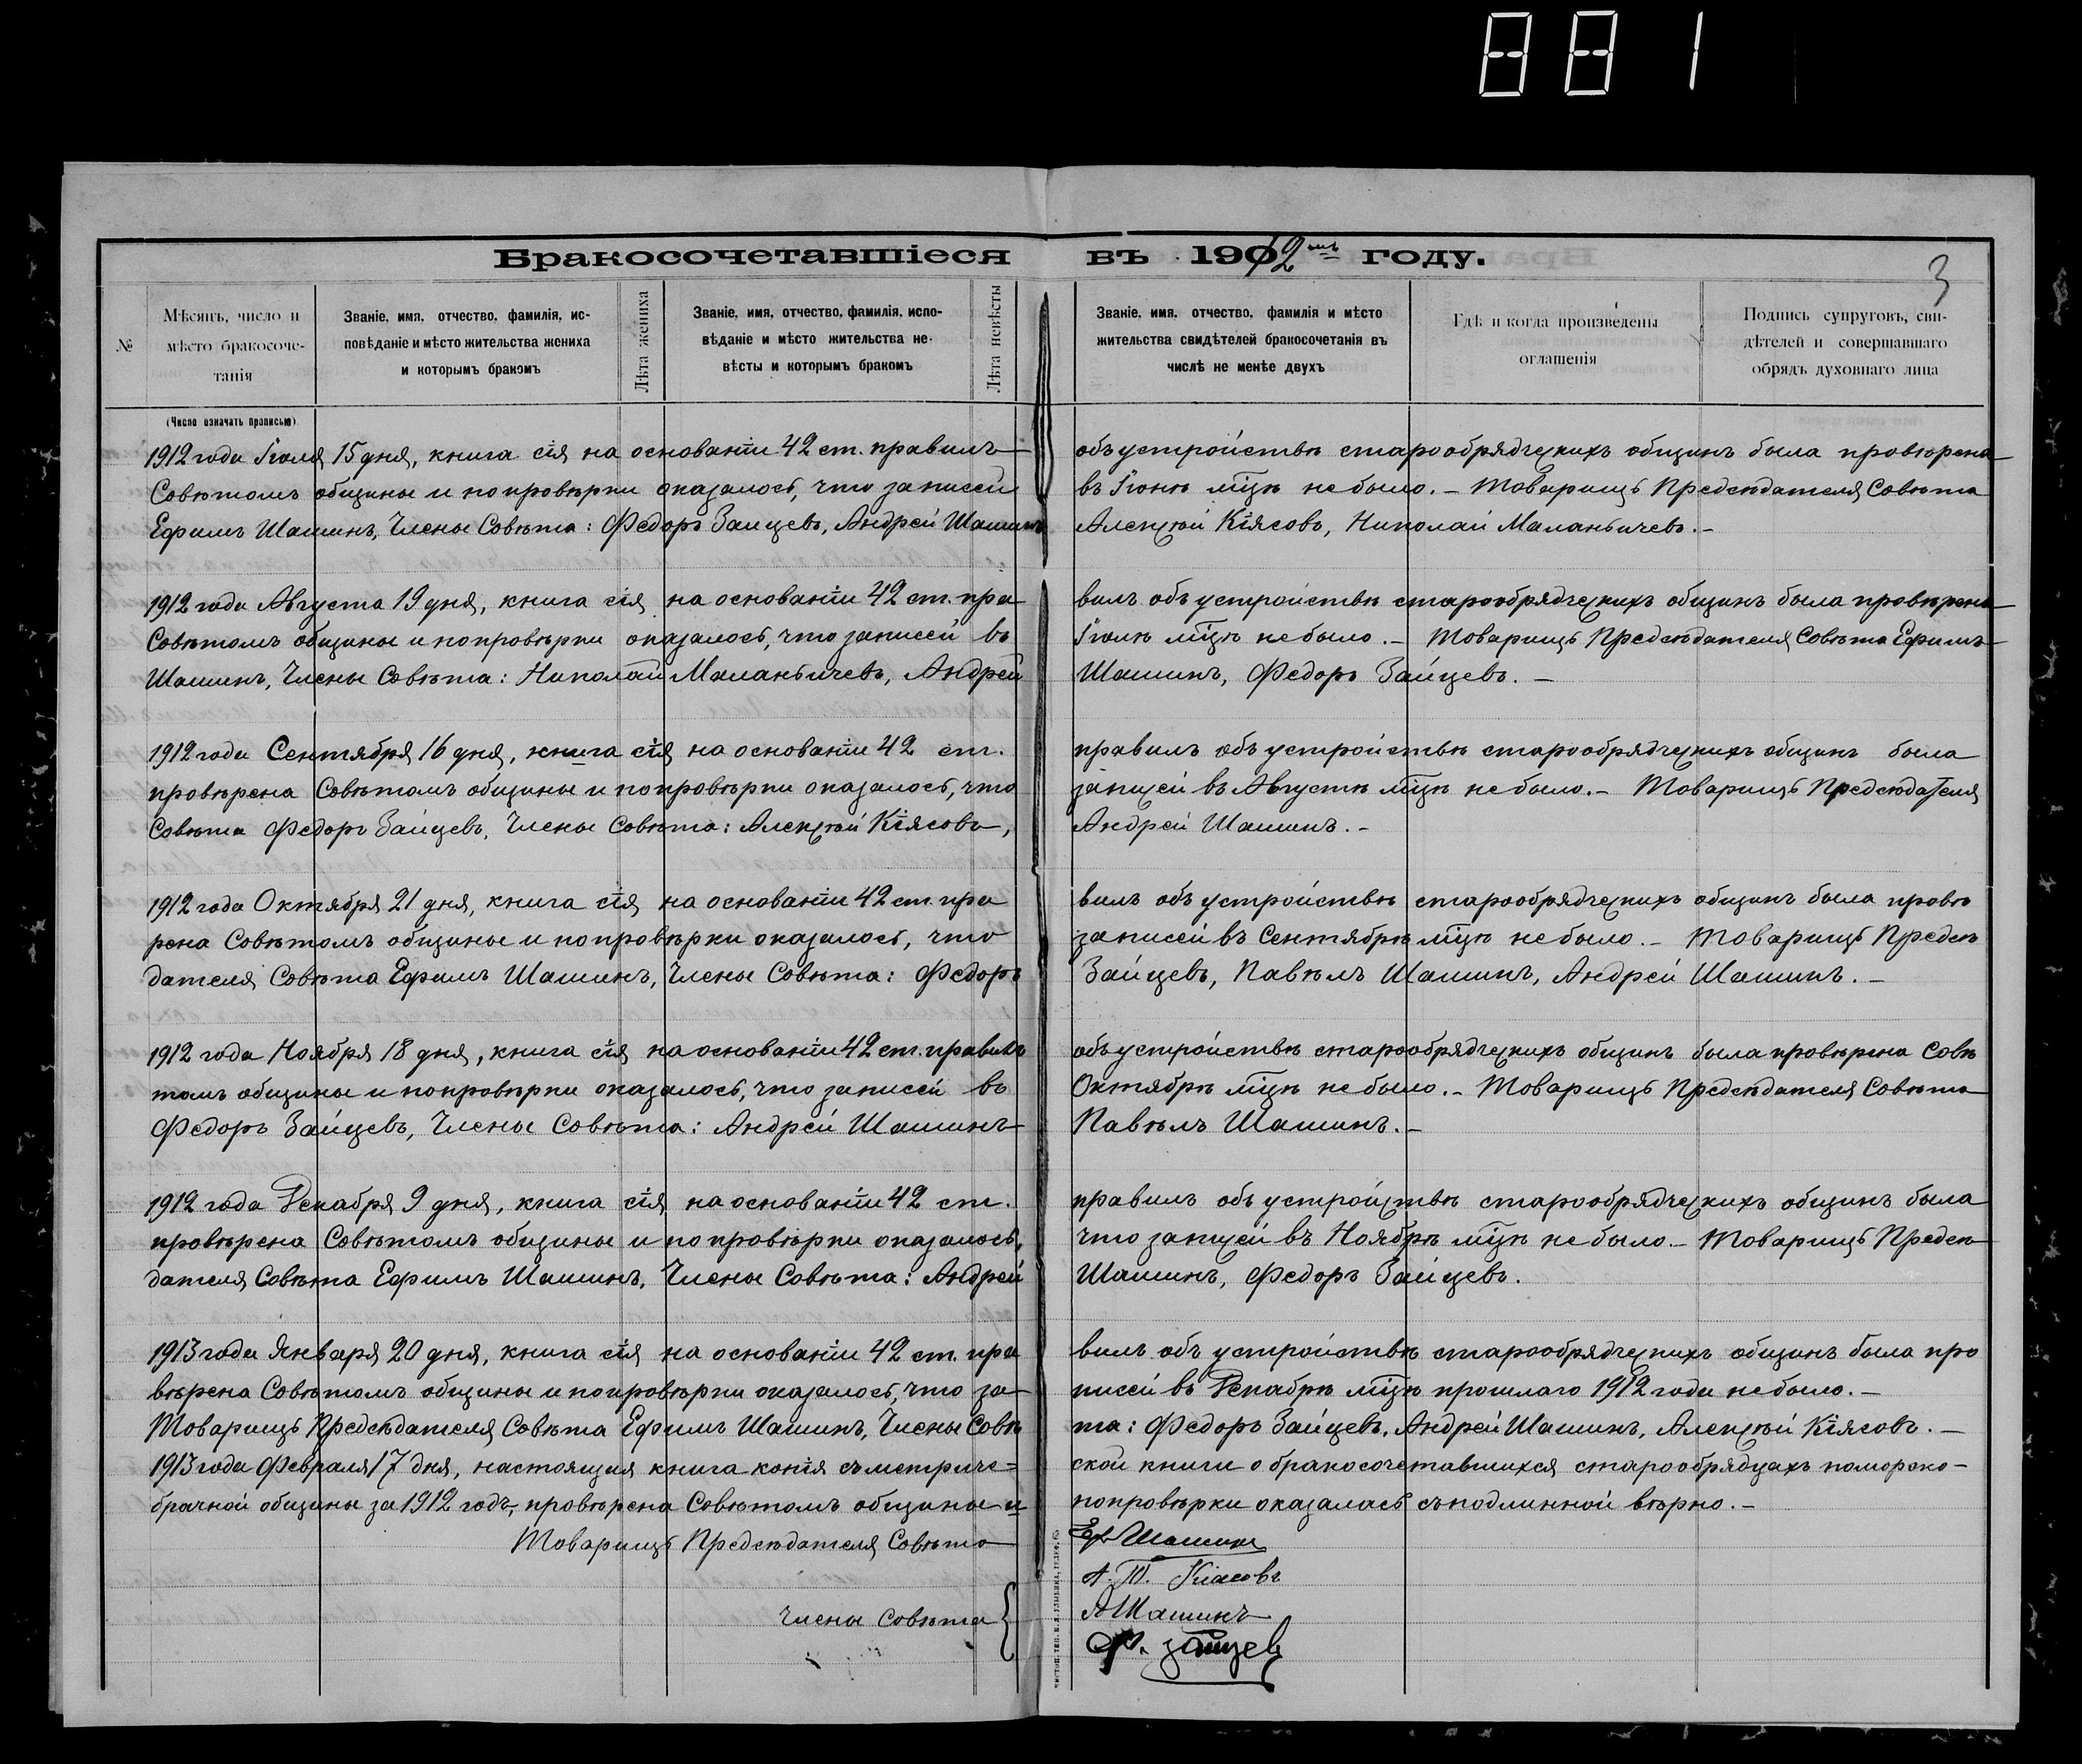 881
Бракосочетавшіеся въ 1912мъ году.
3
№
Мѣсяцъ, число и
мѣсто бракосоче-
танія
(Число означать прописью)
Званіе, имя, отчество, фамилія, ис-
повѣданіе и мѣсто жительства жениха
и которымъ бракомъ
Лѣта жениха
Званіе, имя, отчество, фамилія, испо-
вѣданіе и мѣсто жительства не-
вѣсты и которымъ бракомъ
Лѣта невѣсты
Званіе, имя, отчество, фамилія и мѣсто
жительства свидѣтелей бракосочетанія въ
числѣ не менѣе двухъ
Гдѣ и когда произведены
оглашенія
Подпись супруговъ, сви-
дѣтелей и совершавшаго
обрядъ духовнаго лица
1912 года Іюля 15 дня, книга сія на основаніи 42 ст. правилъ объ устройствѣ старообрядческихъ общинъ была провѣрена
Совѣтомъ общины и по провѣрки оказалось, что записей въ Іюнѣ мѣцѣ не было. – Товарищъ Предсѣдателя Совѣта
Ефимъ Шашинъ, Члены Совѣта: Федоръ Заицевъ, Андрей Шашинъ Алексѣй Кіясовъ, Николай Маланьичевъ. –
1912 года Августа 19 дня, книга сія на основаніи 42 ст. пра вилъ объ устройствѣ старообрядческихъ общинъ была провѣрена
Совѣтомъ общины и по провѣрки оказалось, что записей въ Іюлѣ мѣцѣ не было. – Товарищъ Предсѣдателя Совѣта Ефимъ
Шашинъ, Члены Совѣта: Николай Маланьичевъ, Андрей Шашинъ, Федоръ Зайцевъ. –
1912 года Сентября 16 дня, книга сія на основаніи 42 ст. правилъ объ устройствѣ старообрядческихъ общинъ была
провѣрена Совѣтомъ общины и по провѣрки оказалось, что записей въ Августѣ мѣцѣ не было. – Товарищъ Предсѣдателя
Совѣта Федоръ Зайцевъ, Члены Совѣта: Алексѣй Кіясовъ, Андрей Шашинъ. –
1912 года Октября 21 дня, книга сія на основаніи 42 ст. пра вилъ объ устройствѣ старообрядческихъ общинъ была провѣ
рена Совѣтомъ общины и по провѣрки оказалось, что записей въ Сентябрѣ мѣцѣ не было. – Товарищъ Предсѣ
дателя Совѣта Ефимъ Шашинъ, Члены Совѣта: Федоръ Зайцевъ, Павѣлъ Шашинъ, Андрей Шашинъ. –
1912 года Ноября 18 дня, книга сія на основаніи 42 ст. правилъ объ устройствѣ старообрядческихъ общинъ была провѣрена Совѣ
томъ общины и по провѣрки оказалось, что записей въ Октябрѣ мѣцѣ не было. – Товарищъ Предсѣдателя Совѣта
Федоръ Зайцевъ, Члены Совѣта: Андрей Шашинъ Павѣлъ Шашинъ. –
1912 года Декабря 9 дня, книга сія на основаніи 42 ст. правилъ объ устройствѣ старообрядческихъ общинъ была
провѣрена Совѣтомъ общины и по провѣрки оказалось, что записей въ Ноябрѣ мѣцѣ не было – Товарищъ Предсѣ
дателя Совѣта Ефимъ Шашинъ, Члены Совѣта: Андрей Шашинъ, Федоръ Зайцевъ.
1913 года Января 20 дня, книга сія на основаніи 42 ст. пра вилъ объ устройствѣ старообрядческихъ общинъ была про
вѣрена Совѣтомъ общины и по провѣрки оказалось, что за писей въ Декабрѣ мѣцѣ прошлаго 1912 года не было. –
Товарищъ Предсѣдателя Совѣта Ефимъ Шашинъ, Члены Совѣ та: Федоръ Зайцевъ, Андрей Шашинъ, Алексѣй Кіясовъ. –
1913 года Февраля 17 дня, настоящая книга копія съ метриче= ской книги о бракосочетавшихся старообрядцахъ поморско-
брачной общины за 1912 годъ, провѣрена Совѣтомъ общины и по провѣрки оказалась съ подлинной вѣрно. –
Товарищъ Предсѣдателя Совѣта Еф Шашинъ
А. Т. Кіасовъ
Члены Совѣта А Шашинъ
Ф. Зайцев